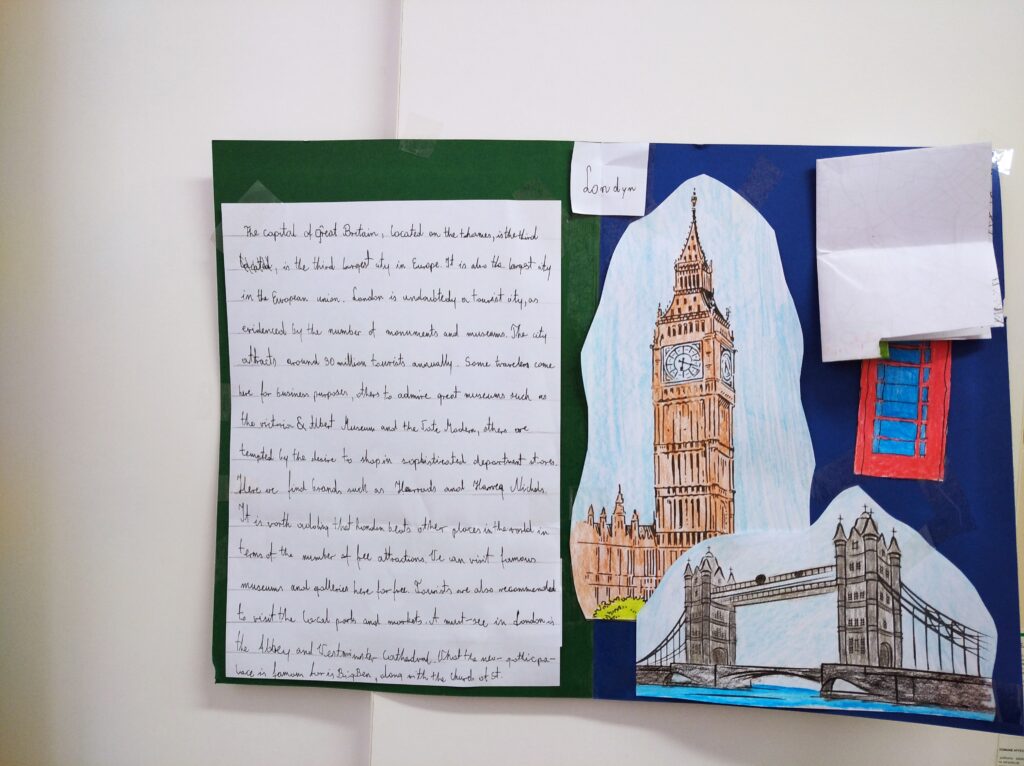 Londyn
The capital of Great Britain, located on the thames, is the third
located, is the third largest city in Europe. It is also the largest city
in the European union. London is undoubtedly a tourist city, as
evidenced by the number of monuments and museums. The city
attracts around 30 million tourists annually. Some travelers come
here for business purposes, others to admire great museums such as
the victoria & Albert Museum and the Tate Modern, others are
tempted by the desire to shop in sophisticated department stores.
Here we find brands such as Harrods and Harvey Nichols.
It is worth adding that London beats other places in the world in
terms of the number of free attractions. We can visit famous
museums and galleries here for free. Tourists are also recommended
to visit the local parks and markets. A must-see in London is
the Abbey and Westminster Cathedral. What the neo-gothic pa-
lace is famous for is Big Ben, along with the church of St.